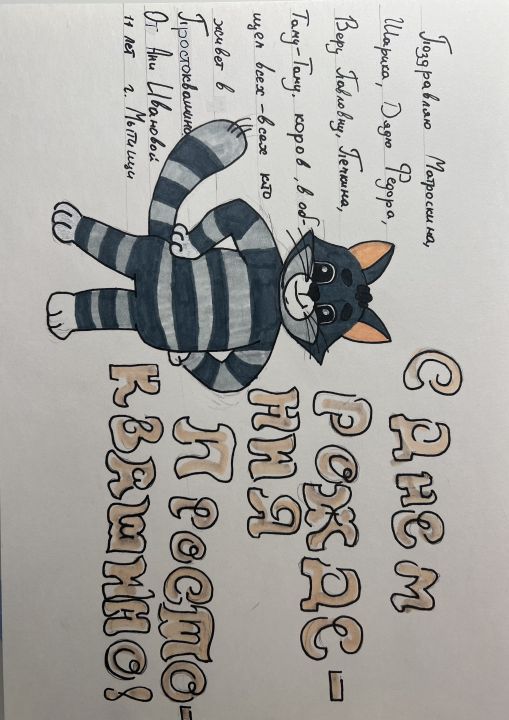 Поздравляю Матроскина,
Шарика, Дядю Федора,
Веру Павловну, Печкина,
Таму-Таму, коров, в об-
щем всех-всех кто
живет в
Простоквашино
От Ани Ивановой
11 лет г. Мытищи
С ДНЕМ
РОЖДЕ-
НИЯ
ПРОСТО-
КВАШИНО!